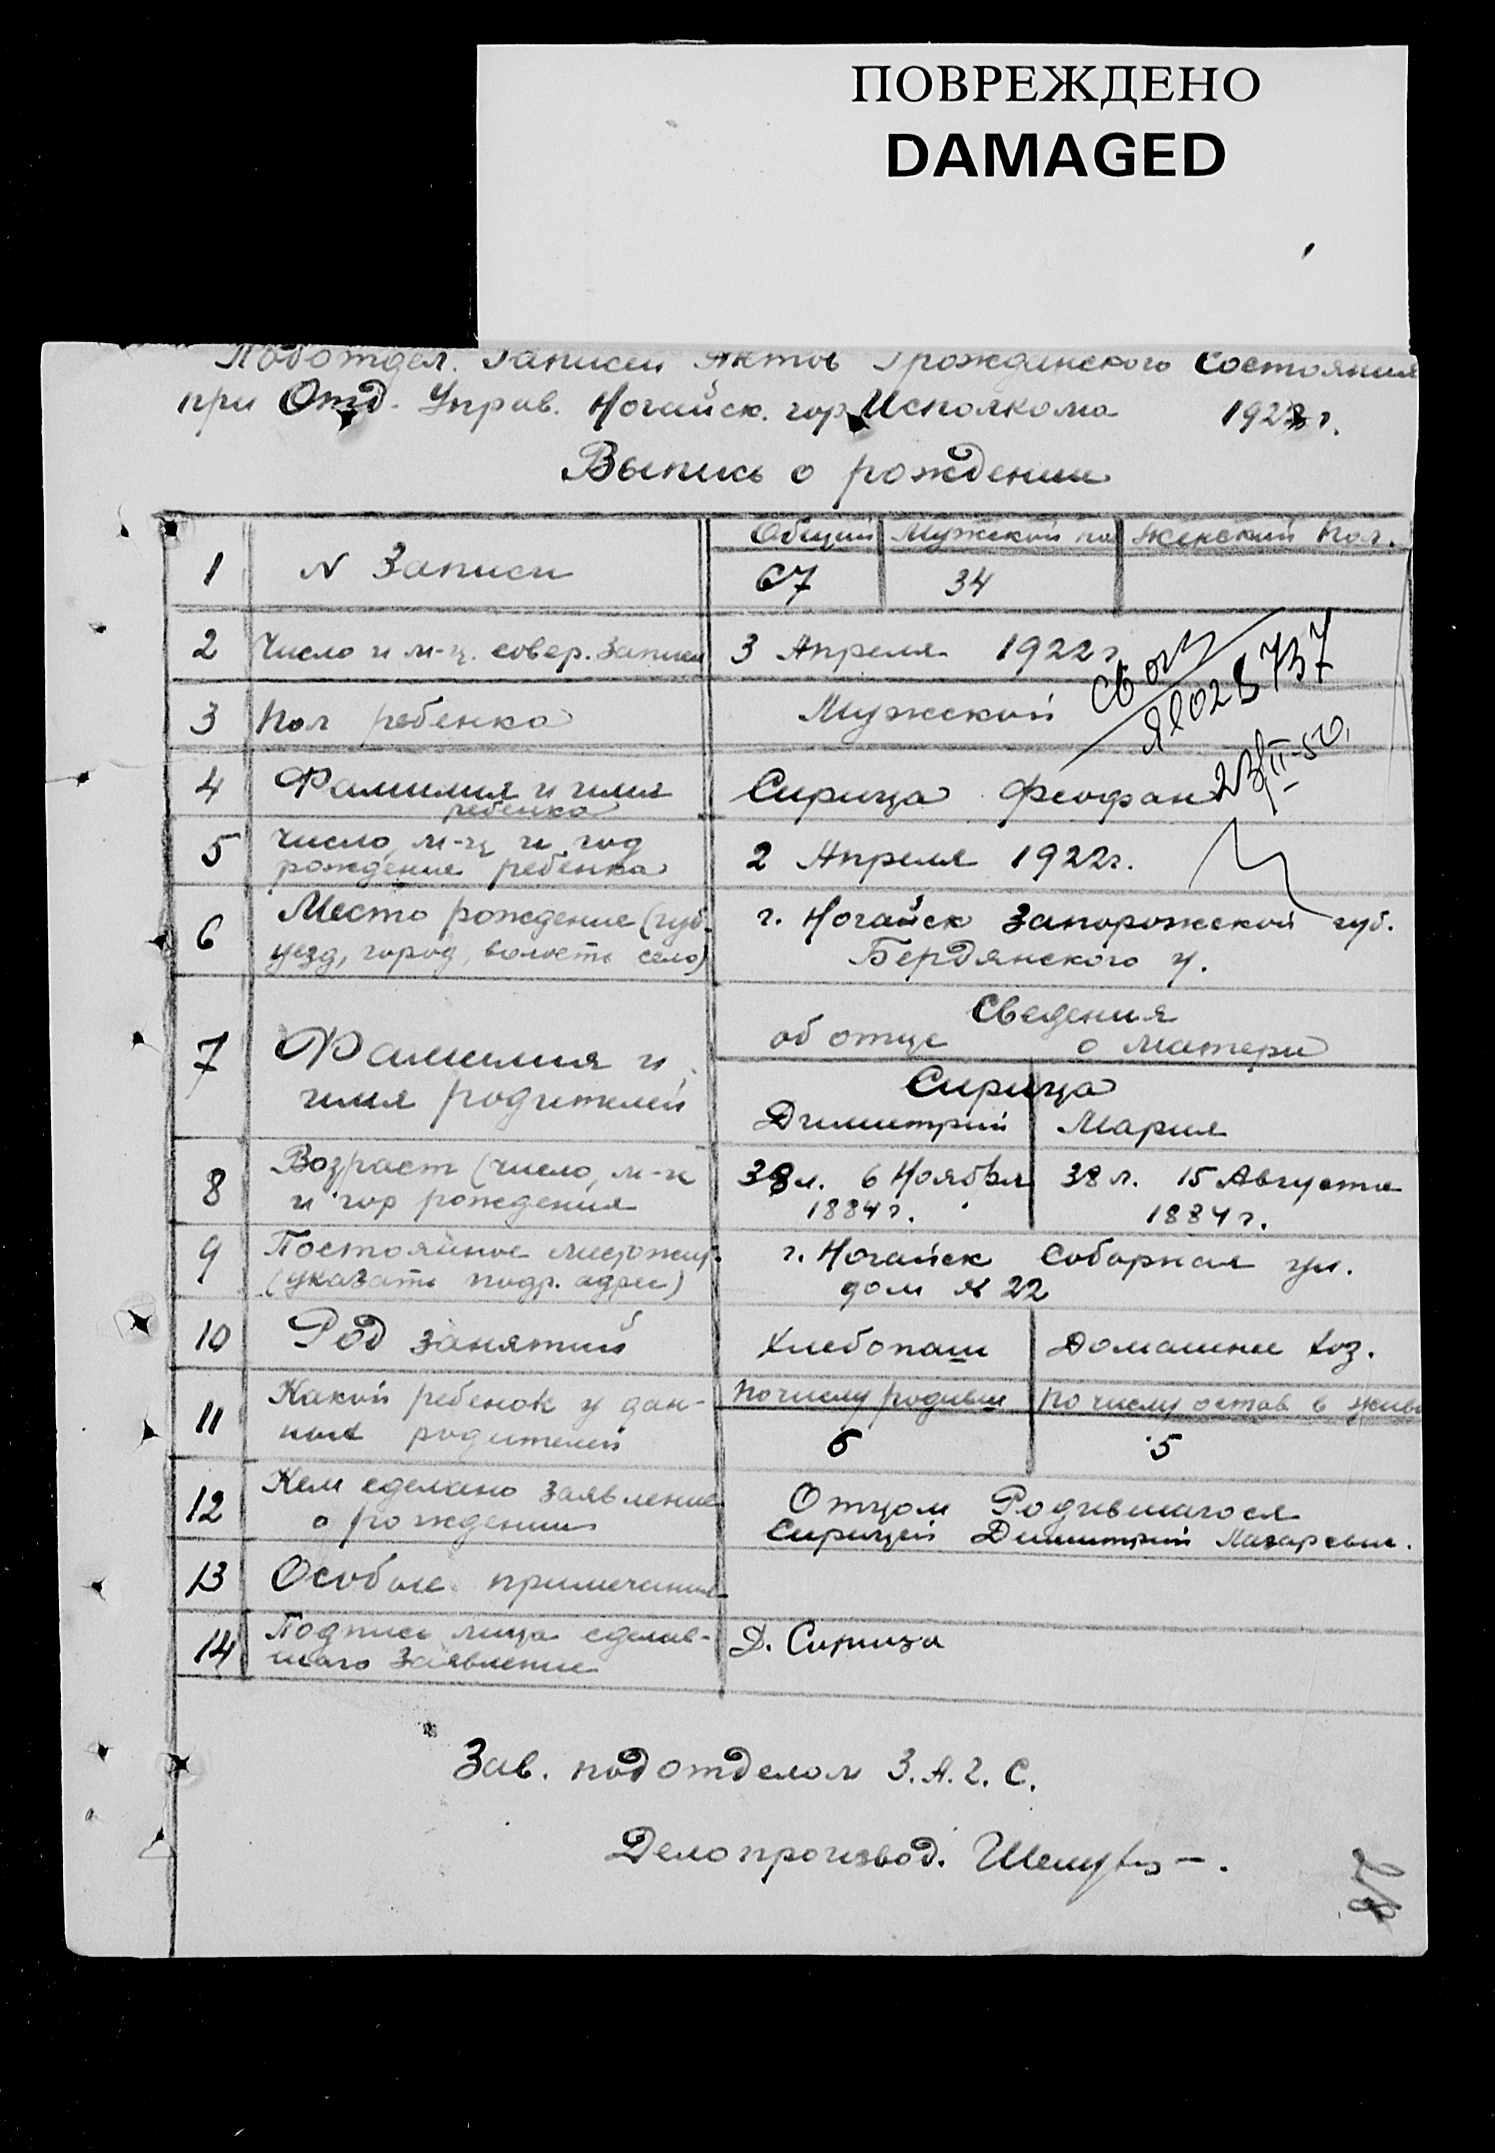 ПОВРЕЖДЕНО
DAMAGED
Подотдел. Записи Актов Гражданского Состояния
при Отд. Управ. Ногайск. гор. Исполкома 1922 г.
Выпись о рождении
Общий Мужской по Женский пол.
1 N Записи 67 34
2 Число и м-ц. совер. записи 3 Апреля 1922 г
3 Пол ребенка Мужской
Св
ЯЮ 028737
23/II-50.
4 Фамилия и имя Сирица Феофан
ребенка
5 Число, м-ц и год
рождение ребенка 2 Апреля 1922г.
6 Место рождение (губ. г. Ногайск Запорожской губ.
уезд, город, волость село) Бердянского у.
Сведения
об отце о матери
7 Фамилия и Сирица
имя родителей Димитрий Мария
8 Возраст (число, м-ц 38 л. 6 Ноября 38 л. 15 Августа
и год рождения 1884 г. 1884 г.
9 Постоянное местожит. г. Ногайск Соборная ул.
(указать подр. адрес) дом № 22
10 Род занятий Хлебопаш Домашнее хоз.
11 Какой ребенок у дан- по числу родивш по числу остав в жив
ных родителей 6 5
12 Кем сделано заявление Отцом Родившагося
о рождении Сирицей Димитрий Лазаревич.
13 Особые примечания
14 Подпись лица сделав- Д. Сирица
шаго заявление
Зав. подотделом З.А.Г.С.
Делопроизвод.